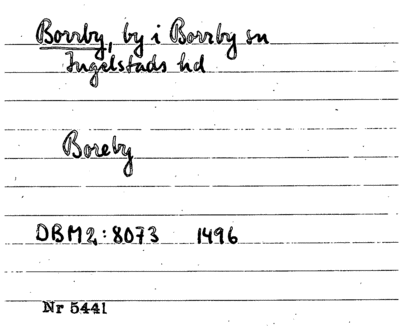 Borrby, by i Borrby sn
Ingelstads hd
Boreby
DBM2:8073 1496
Nr 5441